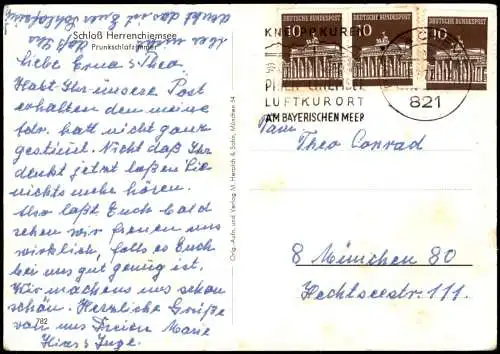 Schloß Herrenchiemsee
Prunkschlafzimmer
liebe Erna & Theo.
Habt Ihr unsere Post
erhalten den meine
Adr. hatt nicht ganz
gestimt. Nicht daß Ihr
denkt jetzt laßen Sie
nichts mehr hören.
Also laßt Euch bald
sehen wir freuen uns
wirklich, falls es Euch
bei uns gut genug ist.
Wir machens uns schon
schön. Herzliche Grüße
von uns Dreien Marie
782
Orig.-Aufn. und Verlag M. Herpich & Sohn, München 54
10 DEUTSCHE BUNDESPOST 10 DEUTSCHE BUNDESPOST 10
KNEIPPKUREN
LUFTKURORT
AM BAYERISCHEN MEER
821
Fam.
Theo Conrad
8 München 80
Hechtseestr. 111.